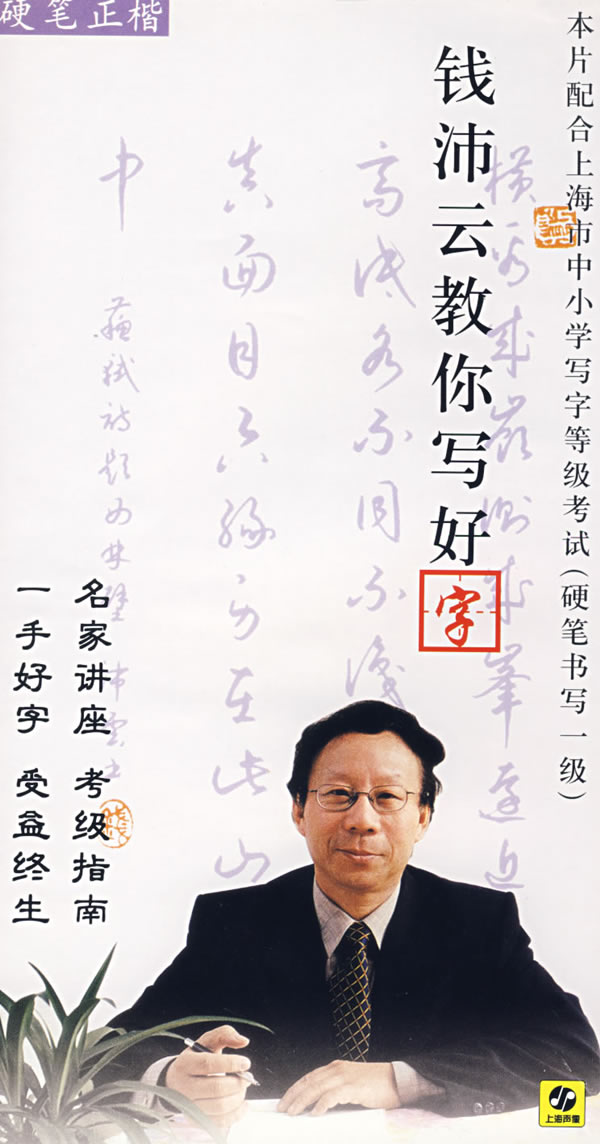 硬笔正楷
本片配合上海市中小学写字等级考试(硬笔书写一级)
钱沛云教你写好字
橫看成嶺側成峯遠近
高低各不同不識
真面目只緣身在此山
中
蘇軾詩題西林壁 沛雲書
名家讲座 考级指南
一手好字 受益终生
上海声像